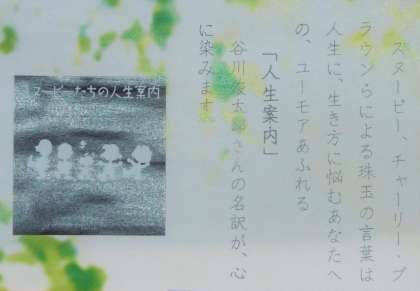 スヌーピー、チャーリー・ブ
ラウンらによる珠玉の言葉は
人生に、生き方に悩むあなたへ
の、ユーモアあふれる
「人生案内」
谷川俊太郎さんの名訳が、心
に染みます。
スヌーピーたちの人生案内